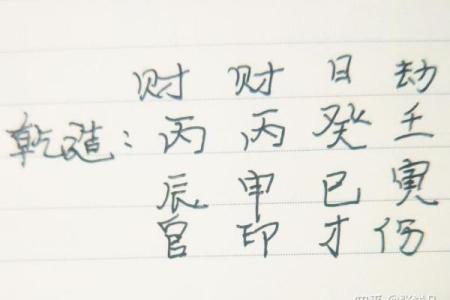 财 财 日 劫
乾造: 丙 丙 癸 壬
辰 申 巳 寅
官 印 才 伤
知乎